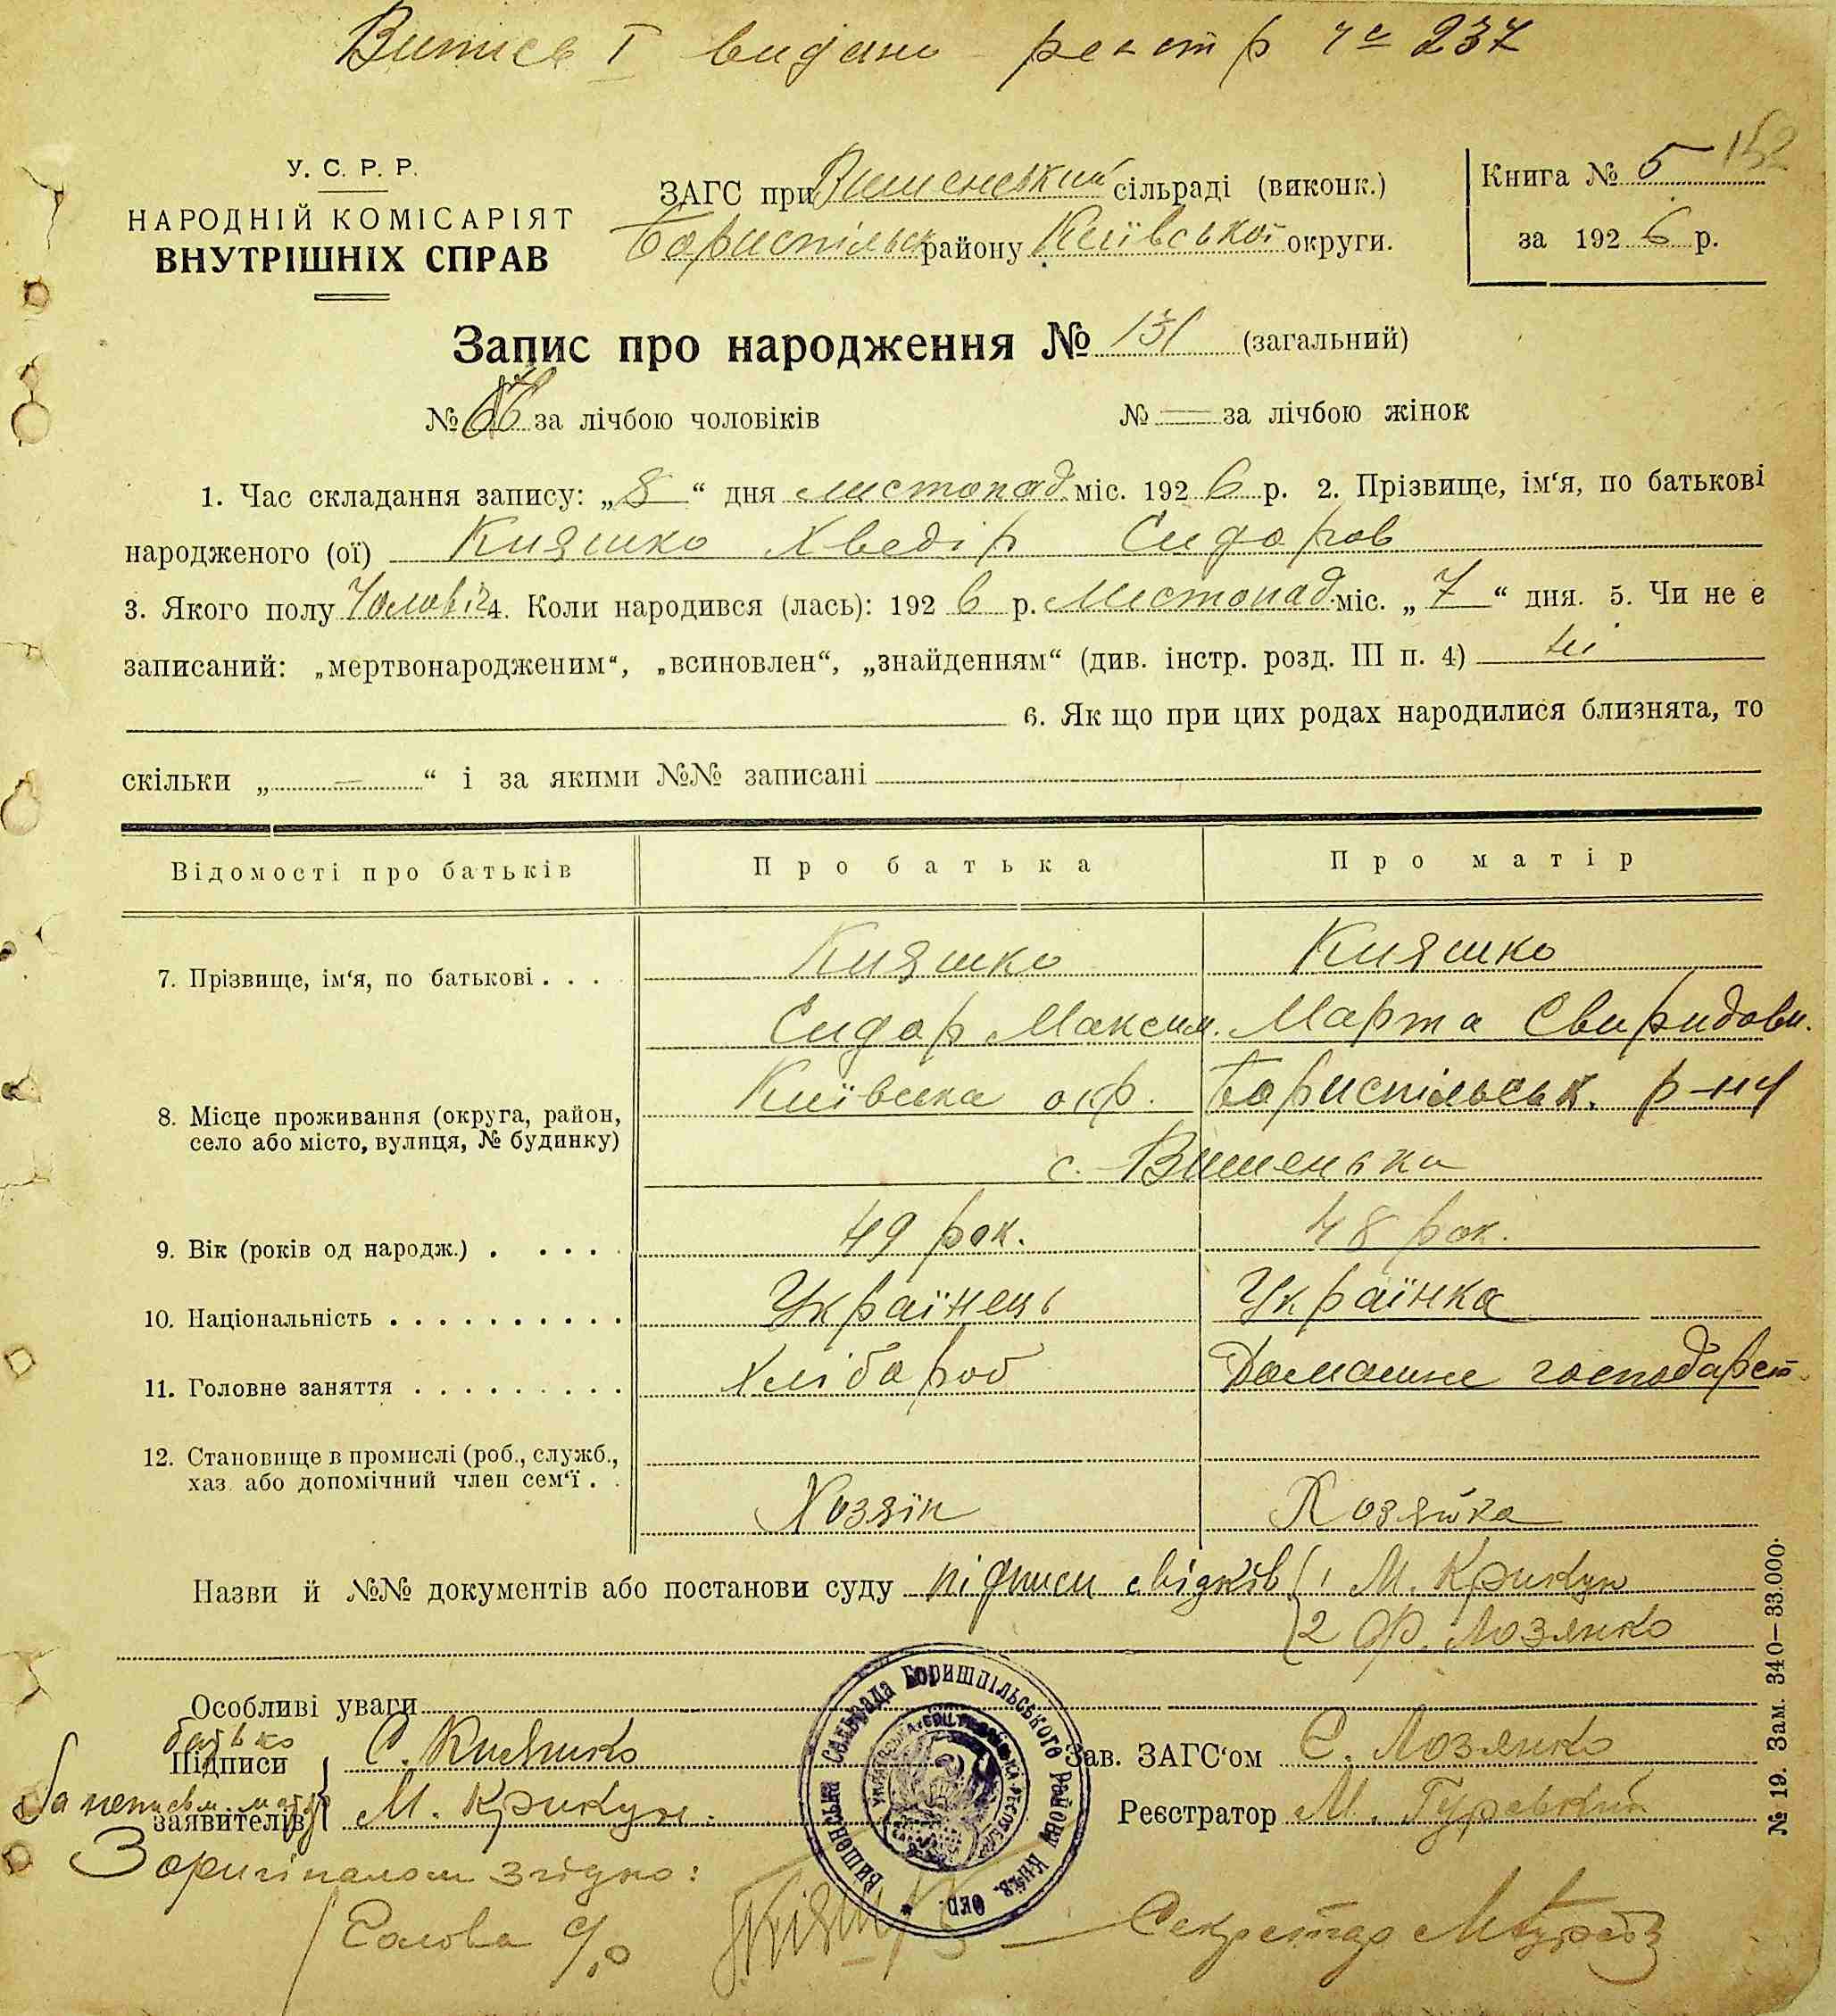 Витись I видано реєстр № 237
У. С. Р. Р.
НАРОДНІЙ КОМІСАРІЯТ
ВНУТРІШНІХ СПРАВ
ЗАГС при Вишенській сільраді (виконк.)
Бориспільск району Київської округи.
Книга № 5 152
за 1926 р.
Запис про народження № 131 (загальний)
№ 66 за лічбою чоловіків
№ = за лічбою жінок
1. Час складання запису: „8“ дня листопад міс. 1926 р. 2. Прізвище, ім‘я, по батькові
народженого (ої) Кияшко Хведір Сидоров
3. Якого полу Чоловіч 4. Коли народився (лась): 1926 р. Листопад міс. „7“ дня. 5. Чи не є
записаний: „мертвонародженим“, „всиновлен“, „знайденням“ (див. інстр. розд. III п. 4) ні
6. Як що при цих родах народилися близнята, то
скільки „ — “ і за якими №№ записані
Відомості про батьків Про батька Про матір
7. Прізвище, ім‘я, по батькові . . . Кияшко Кияшко
Сидор Максим. Марта Свиридовн.
8. Місце проживання (округа, район, село або місто, вулиця, № будинку) Київська окр. Бориспільськ. р-ну
с. Вишенька
9. Вік (років од народж.) . . . . . 49 рок. 48 рок.
10. Національність . . . . . . . . . . Українець Українка
11. Головне заняття . . . . . . . . . Хлібороб Домашнє господарст.
12. Становище в промислі (роб., служб.,
хаз. або допомічний член сем‘ї . .
Хозяїн Хозяйка
Назви й №№ документів або постанови суду підписи свідків 1 М. Крикун
2 Ф. Лозянко
Особливі уваги
батько
Підписи С. Кияшко Зав. ЗАГС‘ом С. Лозянко
За неписьм. матір
заявителів М. Крикун. Реєстратор М. Гуревский
№ 19. Зам. 340—33.000.
Вишенська Сельрада Боришпільського Району Київ. Окр.
З оригіналом згідно:
Голова с/р Секретар